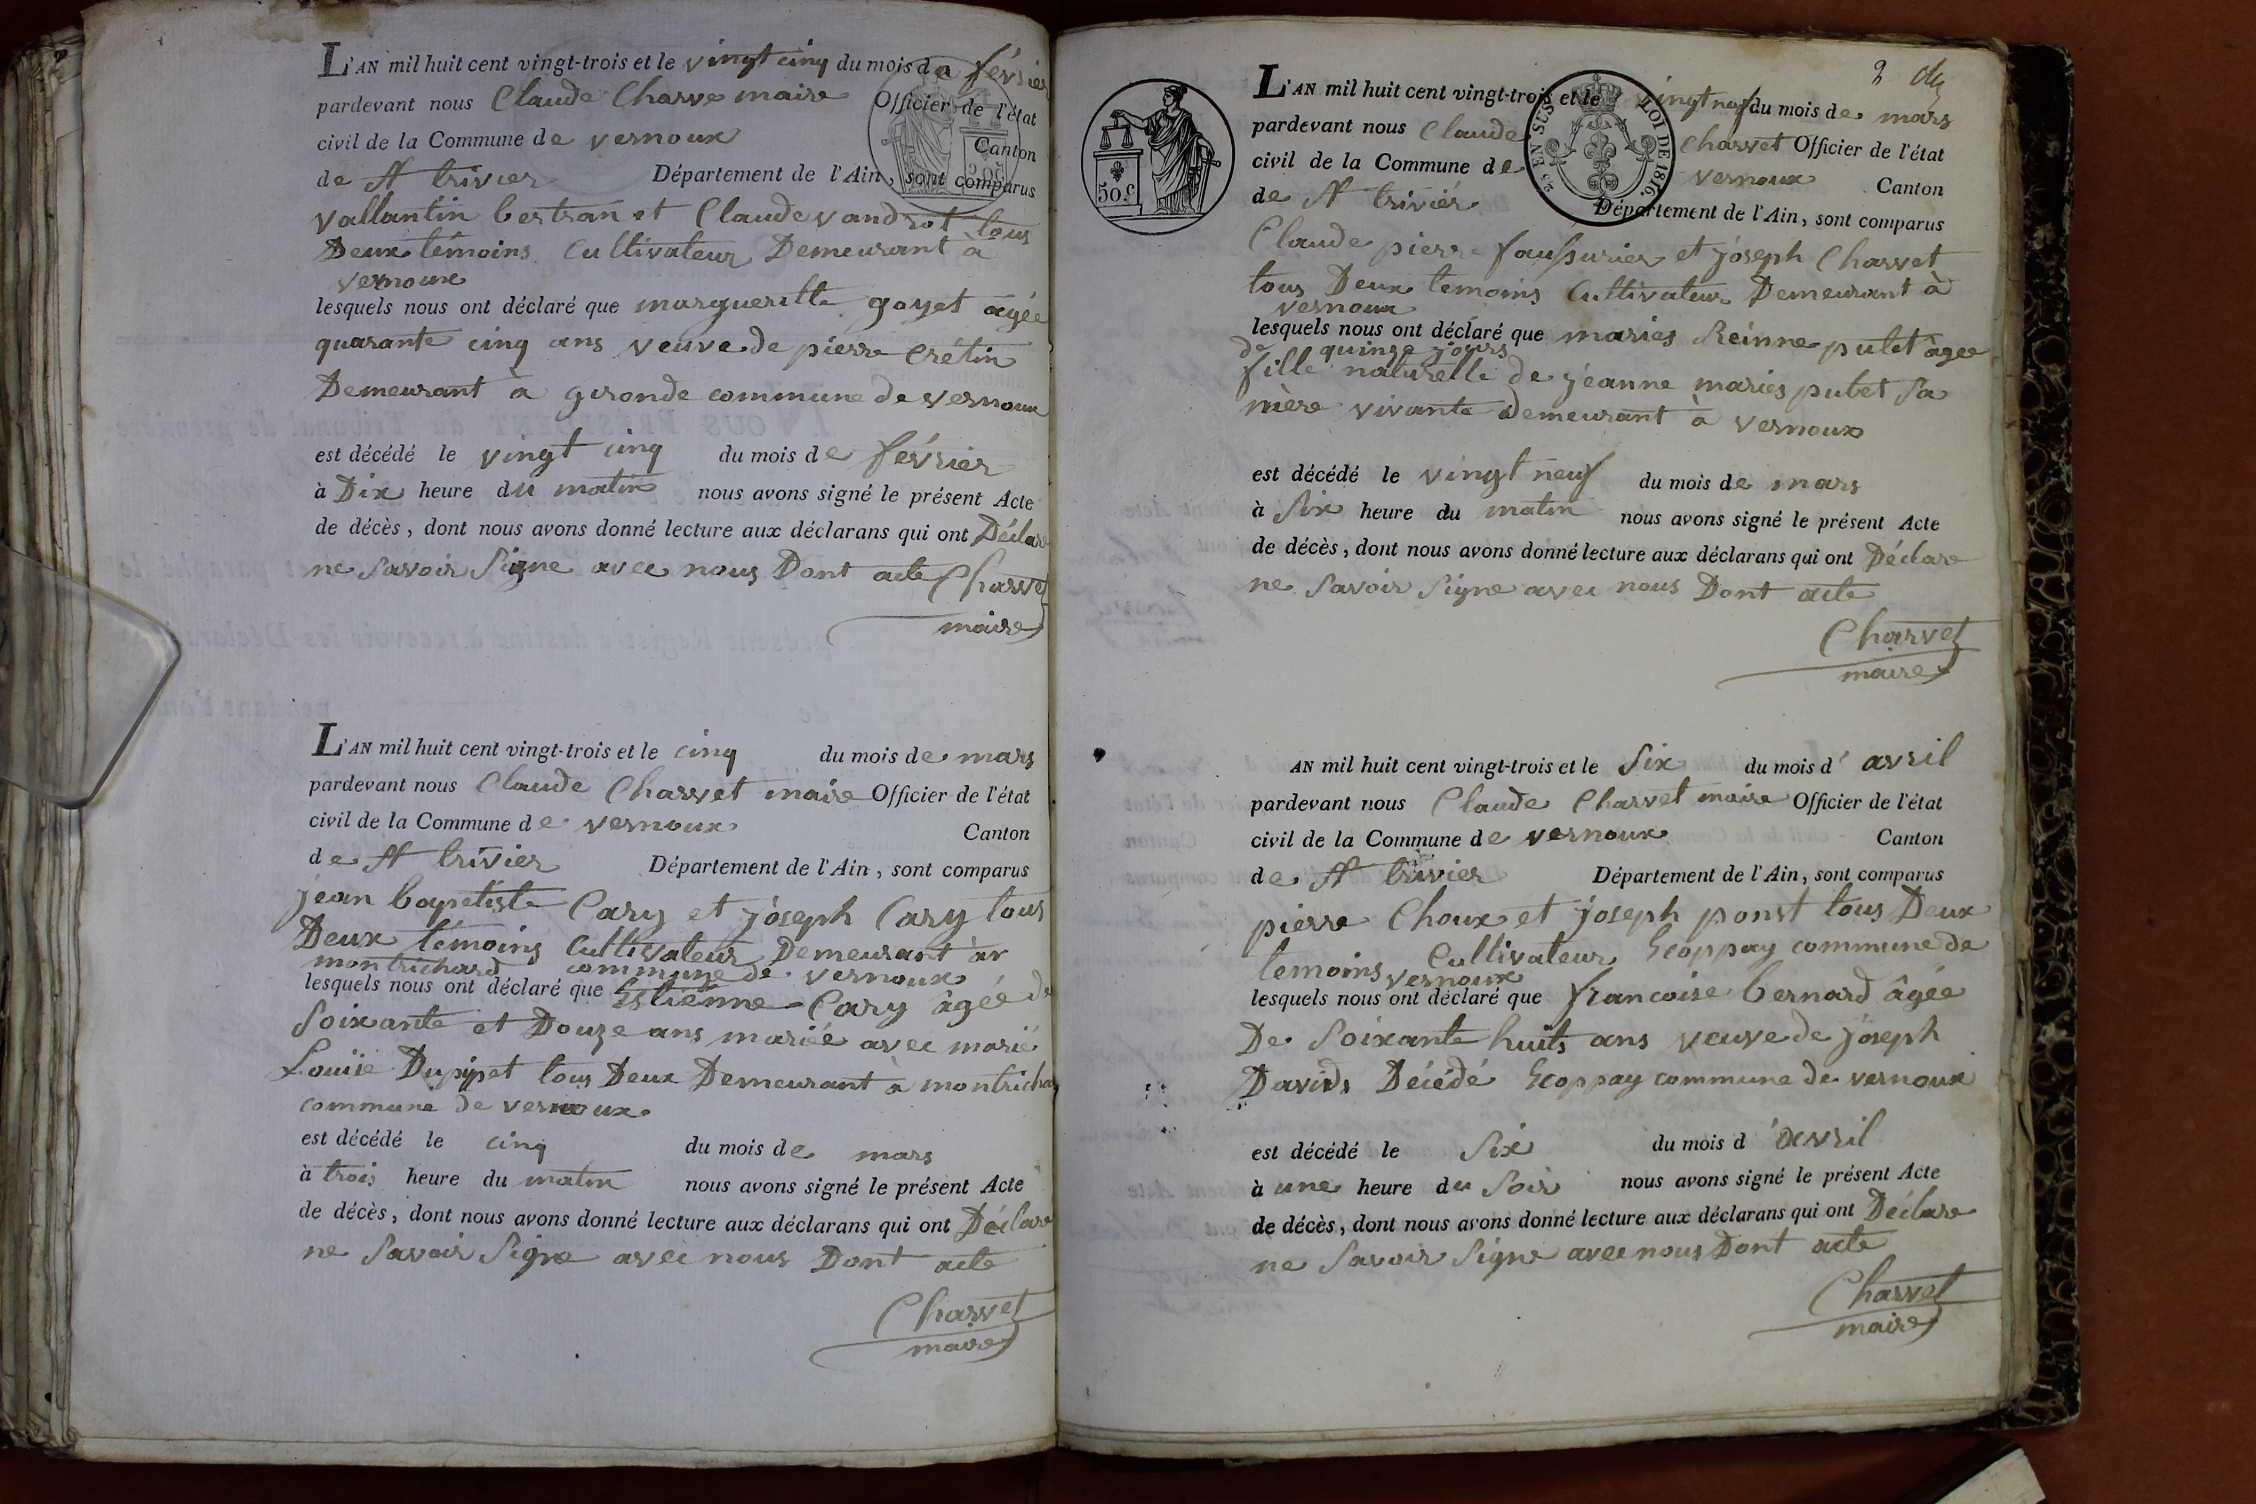 L'AN mil huit cent vingt-trois et le vingt cinq du mois de février
pardevant nous Claude Charve maire Officier de l'état
civil de la Commune de vernoux
Canton
de St trivier Département de l'Ain, sont comparus
vallantin bertran et Claude vandrot tous
Deux témoins Cultivateur Demeurant à
vernoux
lesquels nous ont déclaré que margueritte goyet agée
quarante cinq ans veuve de pierre Crétin
Demeurant à gironde commune de vernoux
est décédé le vingt cinq du mois de février
à Dix heure du matin nous avons signé le présent Acte
de décès, dont nous avons donné lecture aux déclarans qui ont Déclare
ne Savoir Signe avec nous Dont acte Charvet
maire
L'AN mil huit cent vingt-trois et le cinq du mois de mars
pardevant nous Claude Charvet maire Officier de l'état
civil de la Commune de vernoux Canton
de St trivier Département de l'Ain, sont comparus
jean baptiste Cary et joseph Cary tous
Deux témoins Cultivateur Demeurant à
montrichard commune de vernoux
lesquels nous ont déclaré que Estienne Cary âgée de
Soixante et Douze ans mariée avec marié
Louise Dupupet tous Deux Demeurant à montrichar
commune de vernoux
est décédé le cinq du mois de mars
à trois heure du matin nous avons signé le présent Acte
de décès, dont nous avons donné lecture aux déclarans qui ont Déclare
ne Savoir Signe avec nous Dont acte
Charvet
maire
2
50 c
25 EN SUS LOI DE 1816.
L'AN mil huit cent vingt-trois et le vingt neuf du mois de mars
pardevant nous Claude Charvet Officier de l'état
civil de la Commune de vernoux Canton
de St trivier Département de l'Ain, sont comparus
Claude pierre faussurier et joseph Charvet
tous Deux temoins Cultivateur Demeurant à
vernoux
lesquels nous ont déclaré que maries Reinne putet âgée
de quinze jours
fille naturelle de jeanne maries putet Sa
mère vivante demeurant à vernoux
est décédé le vingt neuf du mois de mars
à Six heure du matin nous avons signé le présent Acte
de décès, dont nous avons donné lecture aux déclarans qui ont Déclare
ne Savoir Signe avec nous Dont acte
Charvet
maire
AN mil huit cent vingt-trois et le Six du mois d'avril
pardevant nous Claude Charvet maire Officier de l'état
civil de la Commune de vernoux Canton
de St trivier Département de l'Ain, sont comparus
pierre Choux et joseph ponst tous Deux
temoins Cultivateur Ecoppay commune de
vernoux
lesquels nous ont déclaré que francoise bernard âgée
De Soixante huits ans veuve de joseph
Davids Décédé Ecoppay commune de vernoux
est décédé le Six du mois d'avril
à une heure du Soir nous avons signé le présent Acte
de décès, dont nous avons donné lecture aux déclarans qui ont Déclare
ne Savoir Signe avec nous Dont acte
Charvet
maire